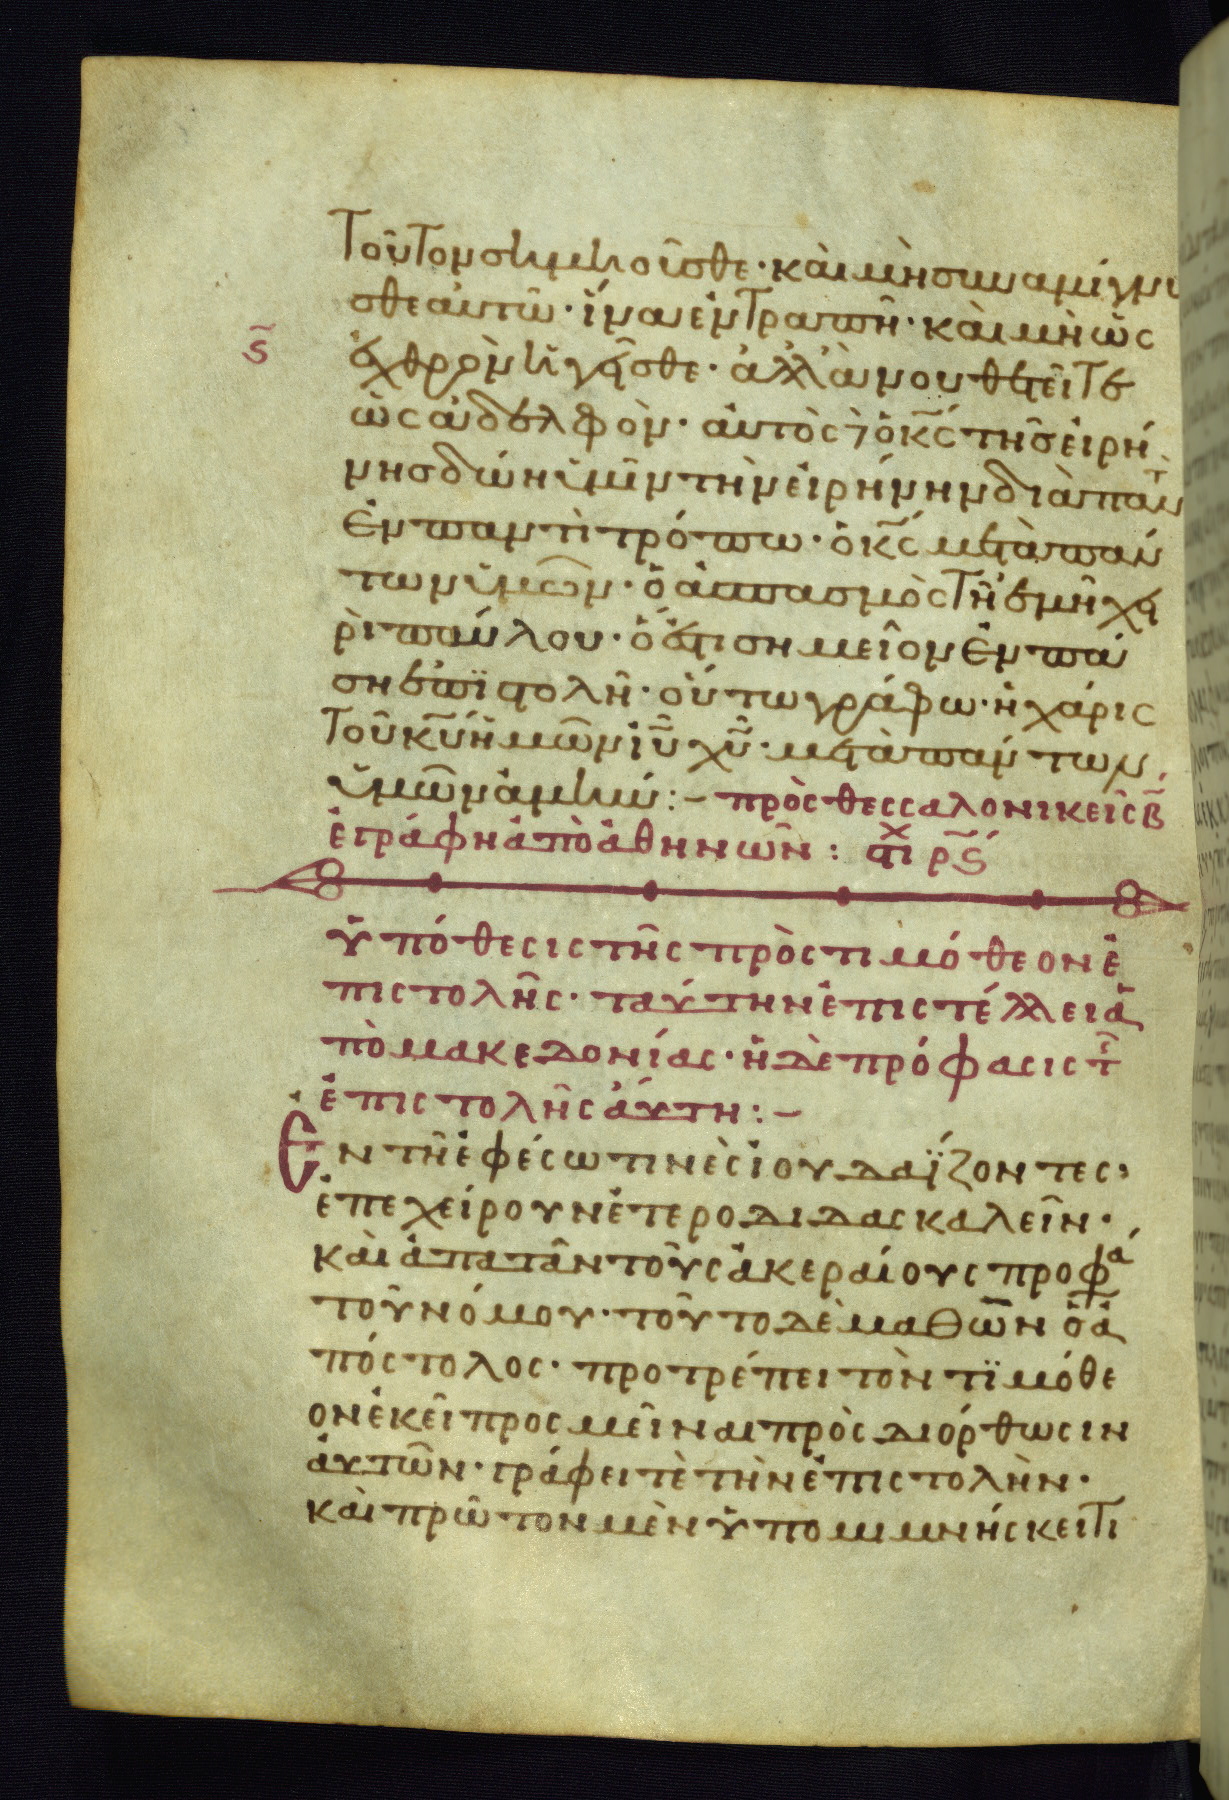 τοῦτον σημειοῦσθε· καὶ μὴ συναμίγνυ
σθε αὐτῶ· ἵνα ἐντραπῆ· καὶ μὴ ὡς
ς̄
ἐχθρὸν ἡγεῖσθε· ἀλλὰ νουθετεῖτε
ὡς ἀδελφὸν· αὐτὸς δὲ ὁ κ̅ς̅ τῆς εἰρή
νης δώη ὑμῖν τὴν εἰρήνην διὰ παντ
ἐν παντὶ τρόπω· ὁ κ̅ς̅ μετὰ πάν
των ὑμῶν· ὁ ἀσπασμὸς τῆ ἐμῆ χει
ρὶ παύλου· ὅ ἐστι σημεῖον ἐν πά
ση ἐπϊστολῆ· οὕτω γράφω· ἡ χάρις
τοῦ κ̅υ̅ ἡμῶν ι̅υ̅ χ̅υ̅· μετὰ πάντων
ὑμῶν ἀμήν:– πρὸς θεσσαλονικεῖς β̅
ἐγράφη ἀπὸ ἀθηνῶν: στιχ ρ̅ς̅
ὑπόθεσις τῆς πρὸς τιμόθεον ἐ
πιστολῆς· ταύτην ἐπιστέλλει ἀ
πὸ μακεδονίας· ἡ δὲ πρόφασις τ̑
ἐπιστολῆς αὕτη:–
Ἐν τῆ ἐφέσω τινὲς ἰουδαΐζοντες·
ἐπεχείρουν ἑτεροδιδασκαλεῖν·
καὶ ἀπατᾶν τοὺς ἀκεραίους προφά
τοῦ νόμου· τοῦτο δὲ μαθὼν ὁ ἀ
πόστολος· προτρέπει τὸν τϊμόθε
ον ἐκεῖ προσμεῖναι πρὸς διόρθωσιν
αὐτῶν· γράφει τὲ τὴν ἐπιστολὴν·
καὶ πρῶτον μὲν ὑπομιμνήσκει τι